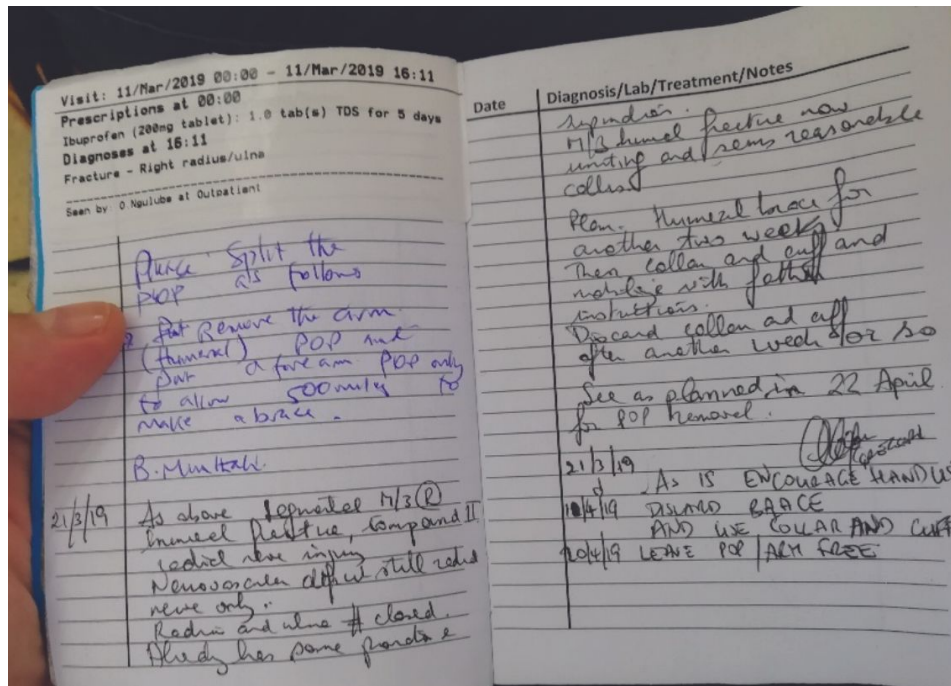 Visit: 11/Mar/2019 00:00 - 11/Mar/2019 16:11
Prescriptions at 00:00
Ibuprofen (200mg tablet): 1.0 tab(s) TDS for 5 days
Diagnoses at 16:11
Fracture - Right radius/ulna
Seen by: O Ngulube at Outpatient
Please Split the
POP as follows
Remove the arm
(Humeral) POP and
put a forearm POP only
to allow 500miles to
make a brace.
B.
21/3/19 As above M/3 (R)
humeral fracture, Compound II
radial nerve injury
Neurovascular deficit still radial
nerve only.
Radius and ulna # closed.
Already has some
Date Diagnosis/Lab/Treatment/Notes
M/3 humeral fracture now
uniting and seems reasonable
Plan. Humeral brace for
another two weeks
Then collar and cuff and
mobilize with
instructions.
Discard collar and cuff
after another week or so
See as planned in 22 April
for POP removal.
21/3/19 AS IS ENCOURAGE HAND US
/4/19 DISCARD BRACE
AND USE COLLAR AND CUFF
20/4/19 LEAVE POP / ARM FREE